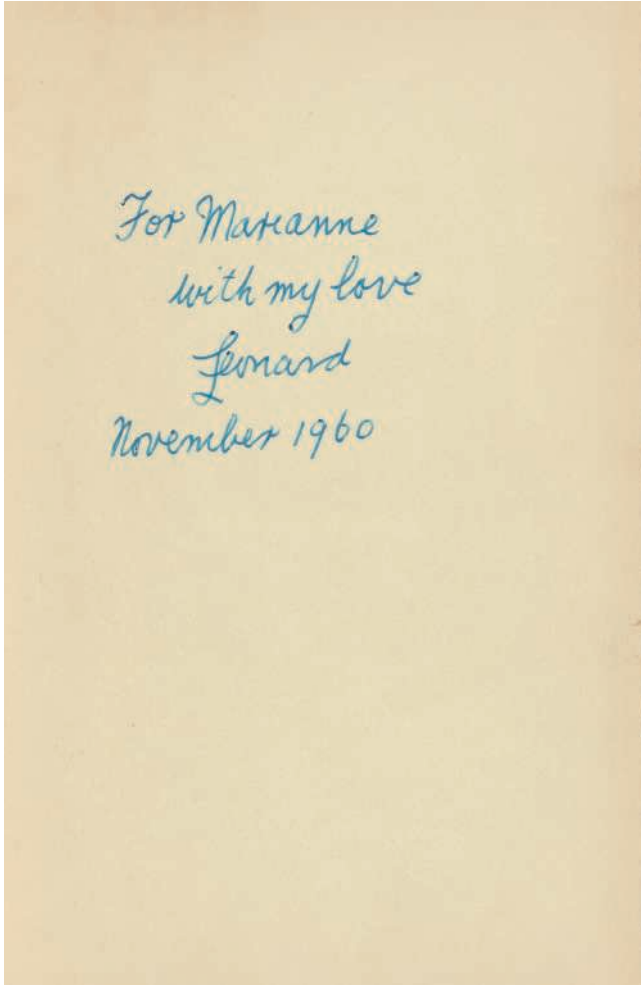 For Marianne
with my love
Leonard
November 1960